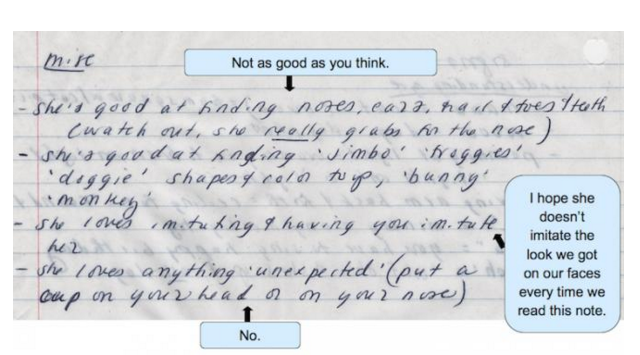 misc
Not as good as you think.
- she's good at finding noses, ears, hair & toes/teeth
(watch out, she really grabs for the nose)
- she's good at finding 'Jimbo' 'froggies'
'doggie' shapes & color top, 'bunny'
'monkey'
- she loves imitating & having you imitate
her
- she loves anything 'unexpected' (put a
cup on your head or on your nose)
I hope she
doesn't
imitate the
look we got
on our faces
every time we
read this note.
No.